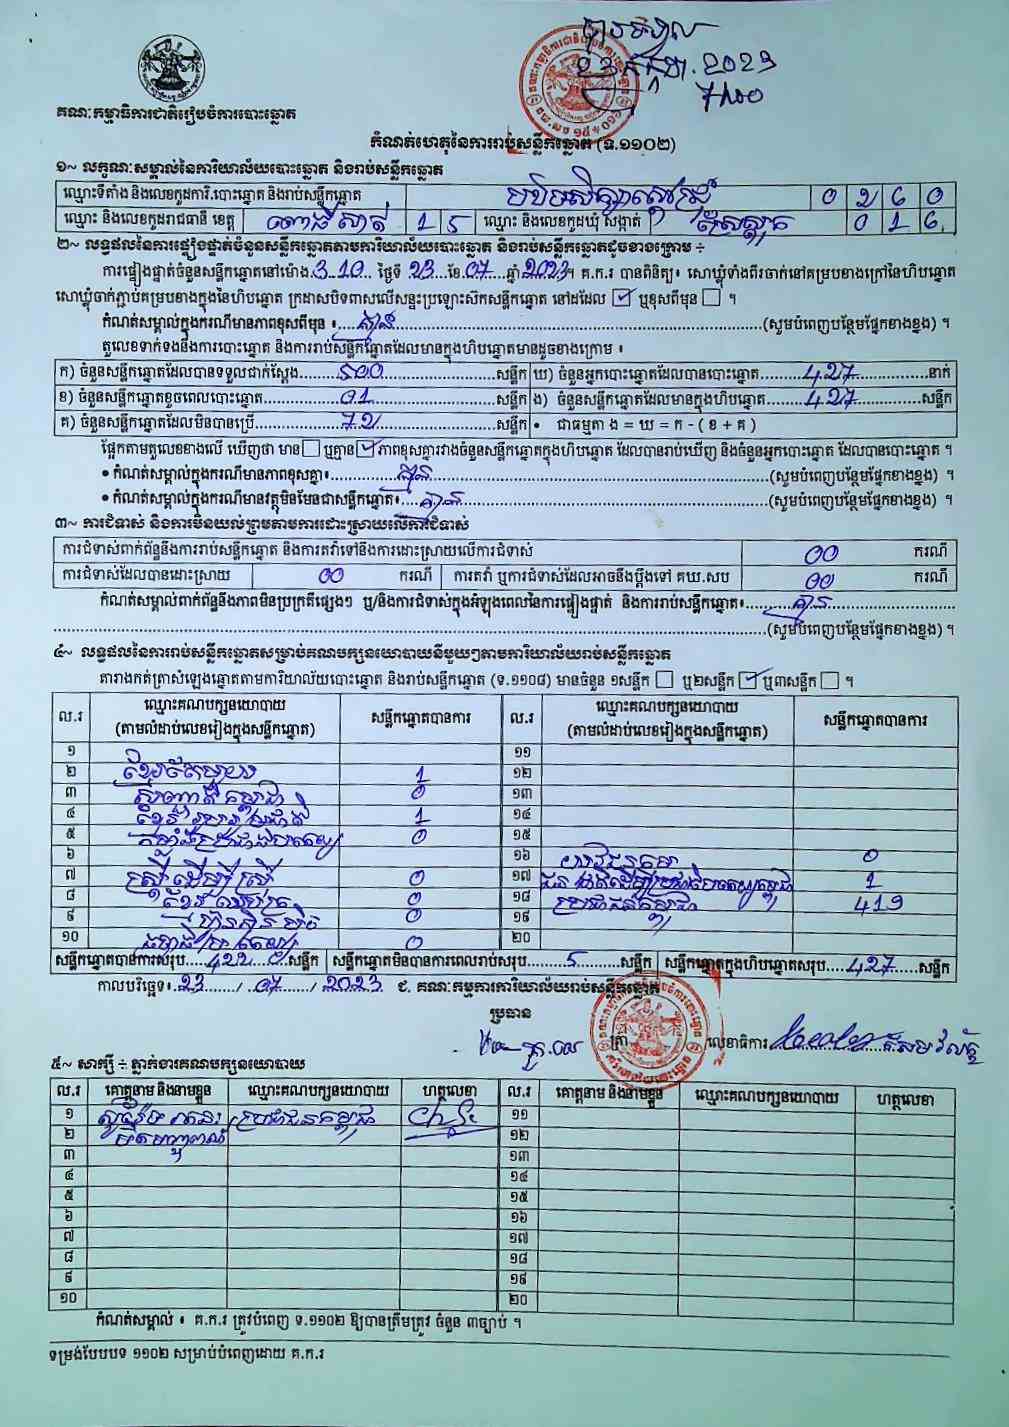 23 កក្កដា. 2023
គណៈកម្មាធិការជាតិរៀបចំការបោះឆ្នោត
កំណត់ហេតុនៃការរាប់សន្លឹកឆ្នោត (ទ.១១០២)
១~ លក្ខណៈសម្គាល់នៃការិយាល័យបោះឆ្នោត និងរាប់សន្លឹកឆ្នោត
ឈ្មោះទីតាំង និងលេខកូដការិ.បោះឆ្នោត និងរាប់សន្លឹកឆ្នោត 0 2 6 0
ឈ្មោះ និងលេខកូដរាជធានី ខេត្ត ពោធិ៍សាត់ 1 5 ឈ្មោះ និងលេខកូដឃុំ សង្កាត់ 0 1 6
២~ លទ្ធផលនៃការផ្ទៀងផ្ទាត់ចំនួនសន្លឹកឆ្នោតតាមការិយាល័យបោះឆ្នោត និងរាប់សន្លឹកឆ្នោតដូចខាងក្រោម ÷
ការផ្ទៀងផ្ទាត់ចំនួនសន្លឹកឆ្នោតនៅម៉ោង 3.10 ថ្ងៃទី 23 ខែ 07 ឆ្នាំ 2023 ។ គ.ក.រ បានពិនិត្យ៖ សោឃ្លុំទាំងពីរចាក់នៅគម្របខាងក្រៅនៃហិបឆ្នោត
សោឃ្លុំចាក់ភ្ជាប់គម្របខាងក្នុងនៃហិបឆ្នោត ក្រដាសបិទពាសលើសន្ទះប្រឡោះស៊កសន្លឹកឆ្នោត នៅដដែល ☑ ឬខុសពីមុន ☐ ។
កំណត់សម្គាល់ក្នុងករណីមានភាពខុសពីមុន ៖ គ្មាន (សូមបំពេញបន្ថែមផ្នែកខាងខ្នង) ។
តួលេខទាក់ទងនឹងការបោះឆ្នោត និងការរាប់សន្លឹកឆ្នោតដែលមានក្នុងហិបឆ្នោតមានដូចខាងក្រោម ៖
ក) ចំនួនសន្លឹកឆ្នោតដែលបានទទួលជាក់ស្តែង 500 សន្លឹក ឃ) ចំនួនអ្នកបោះឆ្នោតដែលបានបោះឆ្នោត 427 នាក់
ខ) ចំនួនសន្លឹកឆ្នោតខូចពេលបោះឆ្នោត 01 សន្លឹក ង) ចំនួនសន្លឹកឆ្នោតដែលមានក្នុងហិបឆ្នោត 427 សន្លឹក
គ) ចំនួនសន្លឹកឆ្នោតដែលមិនបានប្រើ 72 សន្លឹក • ជាធម្មតា ង = ឃ = ក - ( ខ + គ )
ផ្អែកតាមតួលេខខាងលើ ឃើញថា មាន ☐ ឬគ្មាន ☑ ភាពខុសគ្នារវាងចំនួនសន្លឹកឆ្នោតក្នុងហិបឆ្នោត ដែលបានរាប់ឃើញ និងចំនួនអ្នកបោះឆ្នោត ដែលបានបោះឆ្នោត ។
• កំណត់សម្គាល់ក្នុងករណីមានភាពខុសគ្នា៖ គ្មាន (សូមបំពេញបន្ថែមផ្នែកខាងខ្នង) ។
• កំណត់សម្គាល់ក្នុងករណីមានវត្ថុមិនមែនជាសន្លឹកឆ្នោត៖ គ្មាន (សូមបំពេញបន្ថែមផ្នែកខាងខ្នង) ។
៣~ ការជំទាស់ និងការមិនយល់ព្រមតាមការដោះស្រាយលើការជំទាស់
ការជំទាស់ពាក់ព័ន្ធនឹងការរាប់សន្លឹកឆ្នោត និងការតវ៉ាទៅនឹងការដោះស្រាយលើការជំទាស់ 00 ករណី
ការជំទាស់ដែលបានដោះស្រាយ 00 ករណី ការតវ៉ា ឬការជំទាស់ដែលអាចនឹងប្តឹងទៅ គឃ.សប 00 ករណី
កំណត់សម្គាល់ពាក់ព័ន្ធនឹងភាពមិនប្រក្រតីផ្សេងៗ ឬ/និងការជំទាស់ក្នុងអំឡុងពេលនៃការផ្ទៀងផ្ទាត់ និងការរាប់សន្លឹកឆ្នោត៖ គ្មាន
(សូមបំពេញបន្ថែមផ្នែកខាងខ្នង) ។
៤~ លទ្ធផលនៃការរាប់សន្លឹកឆ្នោតសម្រាប់គណបក្សនយោបាយនីមួយៗតាមការិយាល័យរាប់សន្លឹកឆ្នោត
តារាងកត់ត្រាសំឡេងឆ្នោតតាមការិយាល័យបោះឆ្នោត និងរាប់សន្លឹកឆ្នោត (ទ.១១០៨) មានចំនួន ១សន្លឹក ☐ ឬ២សន្លឹក ☑ ឬ៣សន្លឹក ☐ ។
ល.រ ឈ្មោះគណបក្សនយោបាយ (តាមលំដាប់លេខរៀងក្នុងសន្លឹកឆ្នោត) សន្លឹកឆ្នោតបានការ ល.រ ឈ្មោះគណបក្សនយោបាយ (តាមលំដាប់លេខរៀងក្នុងសន្លឹកឆ្នោត) សន្លឹកឆ្នោតបានការ
១ ១១
២ 1 ១២
៣ 0 ១៣
៤ 1 ១៤
៥ 0 ១៥
៦ ១៦ 0
៧ ស្ត្រីដើម្បីស្ត្រី 0 ១៧ 1
៨ 0 ១៨ ប្រជាជនកម្ពុជា 419
៩ 0 ១៩
១០ 0 ២០
សន្លឹកឆ្នោតបានការសរុប 422 សន្លឹក សន្លឹកឆ្នោតមិនបានការពេលរាប់សរុប 5 សន្លឹក សន្លឹកឆ្នោតក្នុងហិបឆ្នោតសរុប 427 សន្លឹក
កាលបរិច្ឆេទ៖ 23 / 07 / 2023 ជ. គណៈកម្មការការិយាល័យរាប់សន្លឹកឆ្នោត
ប្រធាន
ត្រា លេខាធិការ
៥~ សាក្សី ÷ ភ្នាក់ងារគណបក្សនយោបាយ
ល.រ គោត្តនាម និងនាមខ្លួន ឈ្មោះគណបក្សនយោបាយ ហត្ថលេខា ល.រ គោត្តនាម និងនាមខ្លួន ឈ្មោះគណបក្សនយោបាយ ហត្ថលេខា
១ ប្រជាជនកម្ពុជា ១១
២ ១២
៣ ១៣
៤ ១៤
៥ ១៥
៦ ១៦
៧ ១៧
៨ ១៨
៩ ១៩
១០ ២០
កំណត់សម្គាល់ ៖ គ.ក.រ ត្រូវបំពេញ ទ.១១០២ ឱ្យបានត្រឹមត្រូវ ចំនួន ៣ច្បាប់ ។
ទម្រង់បែបបទ ១១០២ សម្រាប់បំពេញដោយ គ.ក.រ